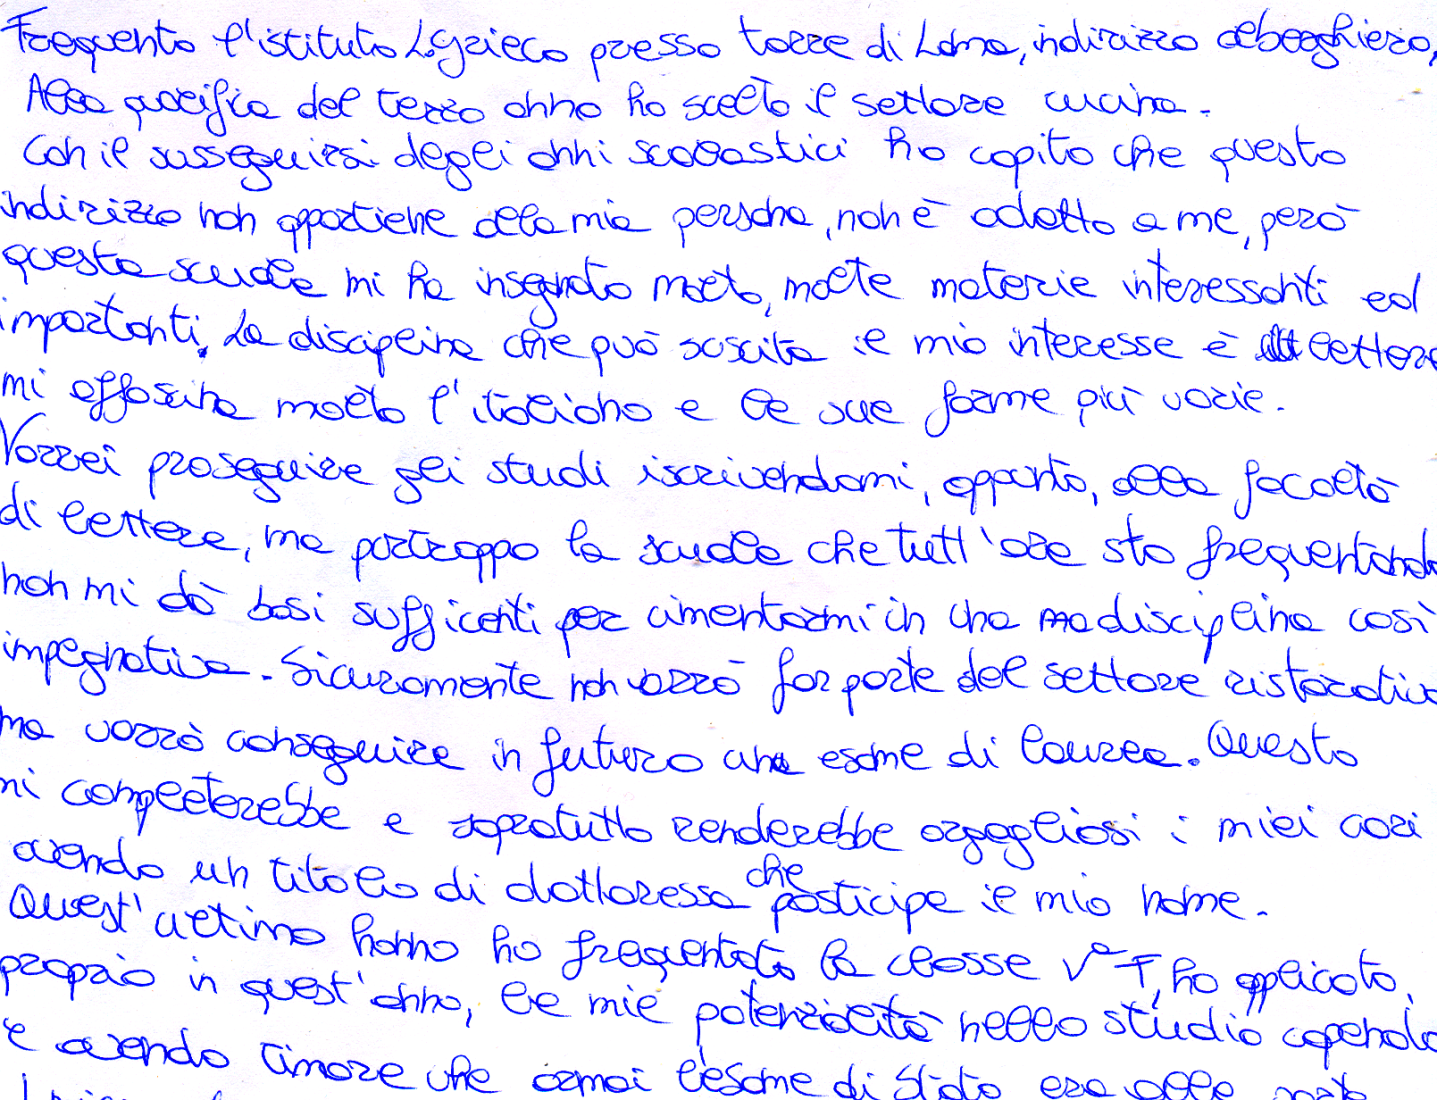 Frequento l'istituto Lo Grieco presso torre di Lama, indirizzo alberghiero,
Alla qualifica del terzo anno ho scelto il settore cucina.
Con il susseguirsi degli anni scolastici ho capito che questo
indirizzo non appartiene alla mia persona, non è adatto a me, però
questa scuola mi ha insegnato molto, molte materie interessanti ed
importanti. La disciplina che può suscita il mio interesse è lettere
mi affascina molto l'italiano e le sue forme più varie.
Vorrei proseguire gli studi iscrivendomi, appunto, alla facoltà
di lettere, ma purtroppo la scuola che tutt'ora sto frequentando
non mi dà basi sufficenti per cimentarmi in una disciplina così
impegnativa. Sicuramente non vorrò far parte del settore ristorativo
ma vorrò conseguire in futuro una esame di laurea. Questo
mi completerebbe e sopratutto renderebbe orgogliosi i miei cari
avendo un titolo di dottoressa che posticipe il mio nome.
Quest'ultimo hanno ho frequentato la classe V° T, ho applicato,
proprio in quest'anno, le mie potenzialità nello studio capendo
e avendo timore che ormai l'esame di Stato era alle porte